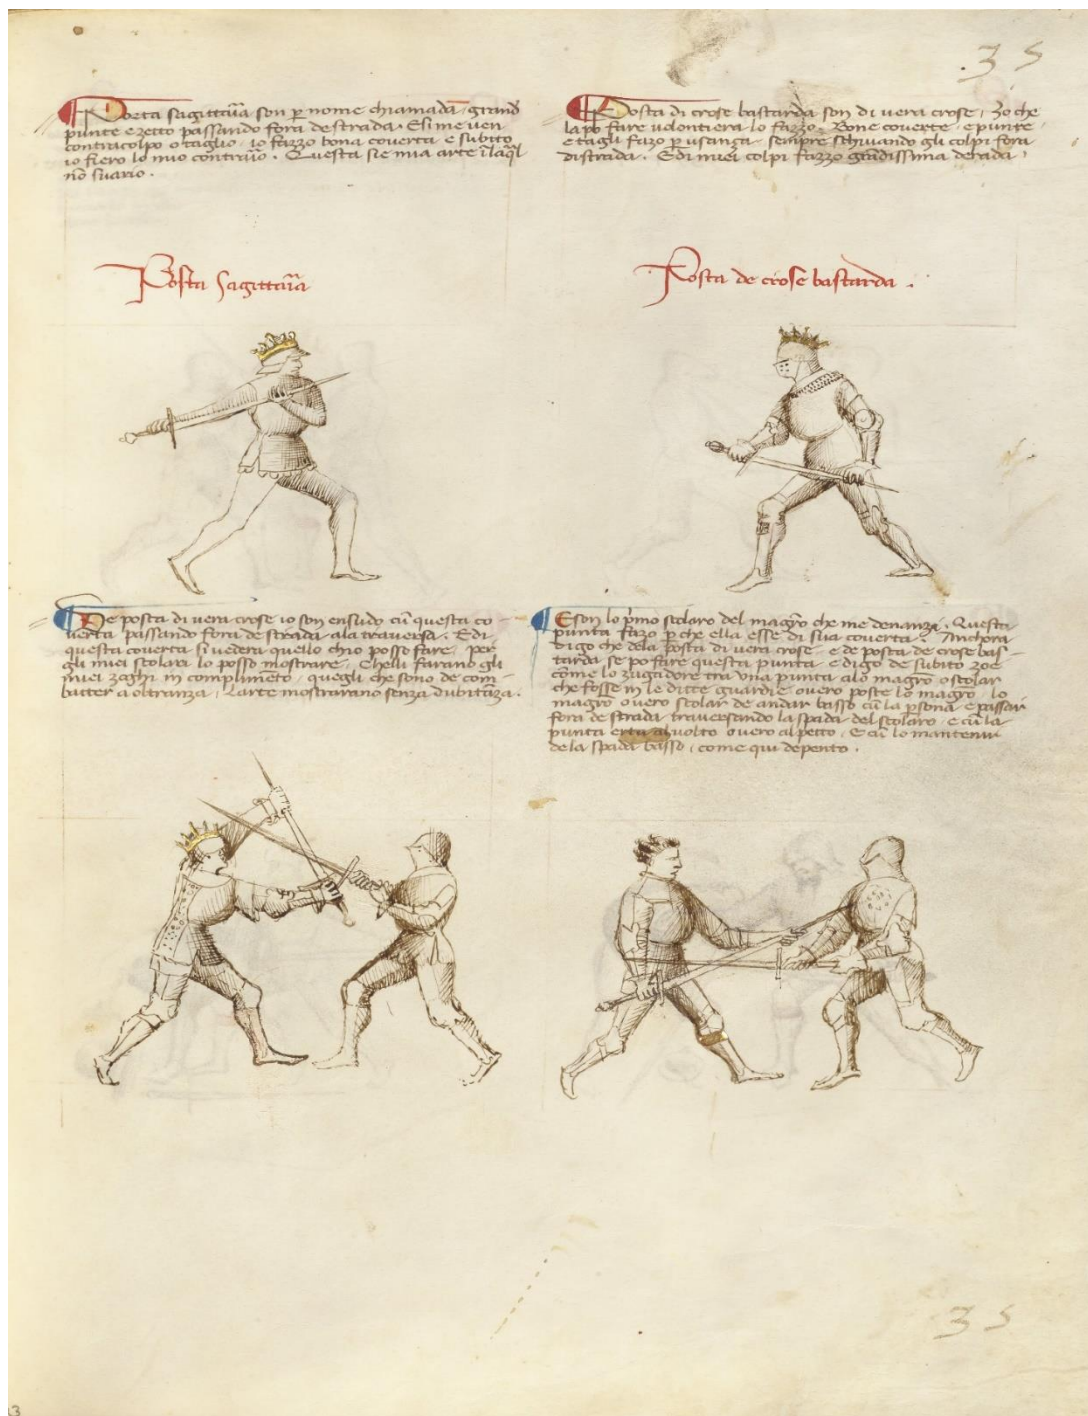 35
Posta sagittaria son per nome chiamada, grand
punte e zetto passando fora de strada. E si me ven
contracolpo o taglio, io fazzo bona coverta, e subito
io fiero lo mio contrario. Questa sie mia arte in la qual
non svario.
Posta di crose bastarda son di vera crose, zo che
la po fare volontiera lo fazzo. Bone coverte, e punte
e tagli fazo per usanza, sempre schivando gli colpi fora
di strada. E di miei colpi fazzo grandissima derada.
Posta Sagittaria
Posta de crose bastarda.
De posta di vera crose io son ensudo cum questa co-
verta passando fora de strada ala traversa. E di
questa coverta si vedera quello ch'io posso fare, per
gli miei scolari lo posso mostrare, Chelli farano gli
miei zoghi in complimento, quegli che sono de com-
batter a oltranza, L'arte mostrarano senza dubitanza.
E son lo primo scolaro del magistro che me denanzi. Questa
punta fazo per che ella esse di sua coverta. Anchora
digo che de la posta di vera crose, e de posta de crose bas-
tarda se po fare questa punta, e digo de subito zoe
come lo zugadore tra una punta a lo magistro o scolar
che fosse in le ditte guardie overo poste lo magistro, lo
magistro overo scolar de andar basso cum la persona, e passar
fora de strada, traversando la spada del scolaro, e cum la
punta erta al volto overo al petto, E cum lo mantenir
de la spada basso, come qui depento.
35
3